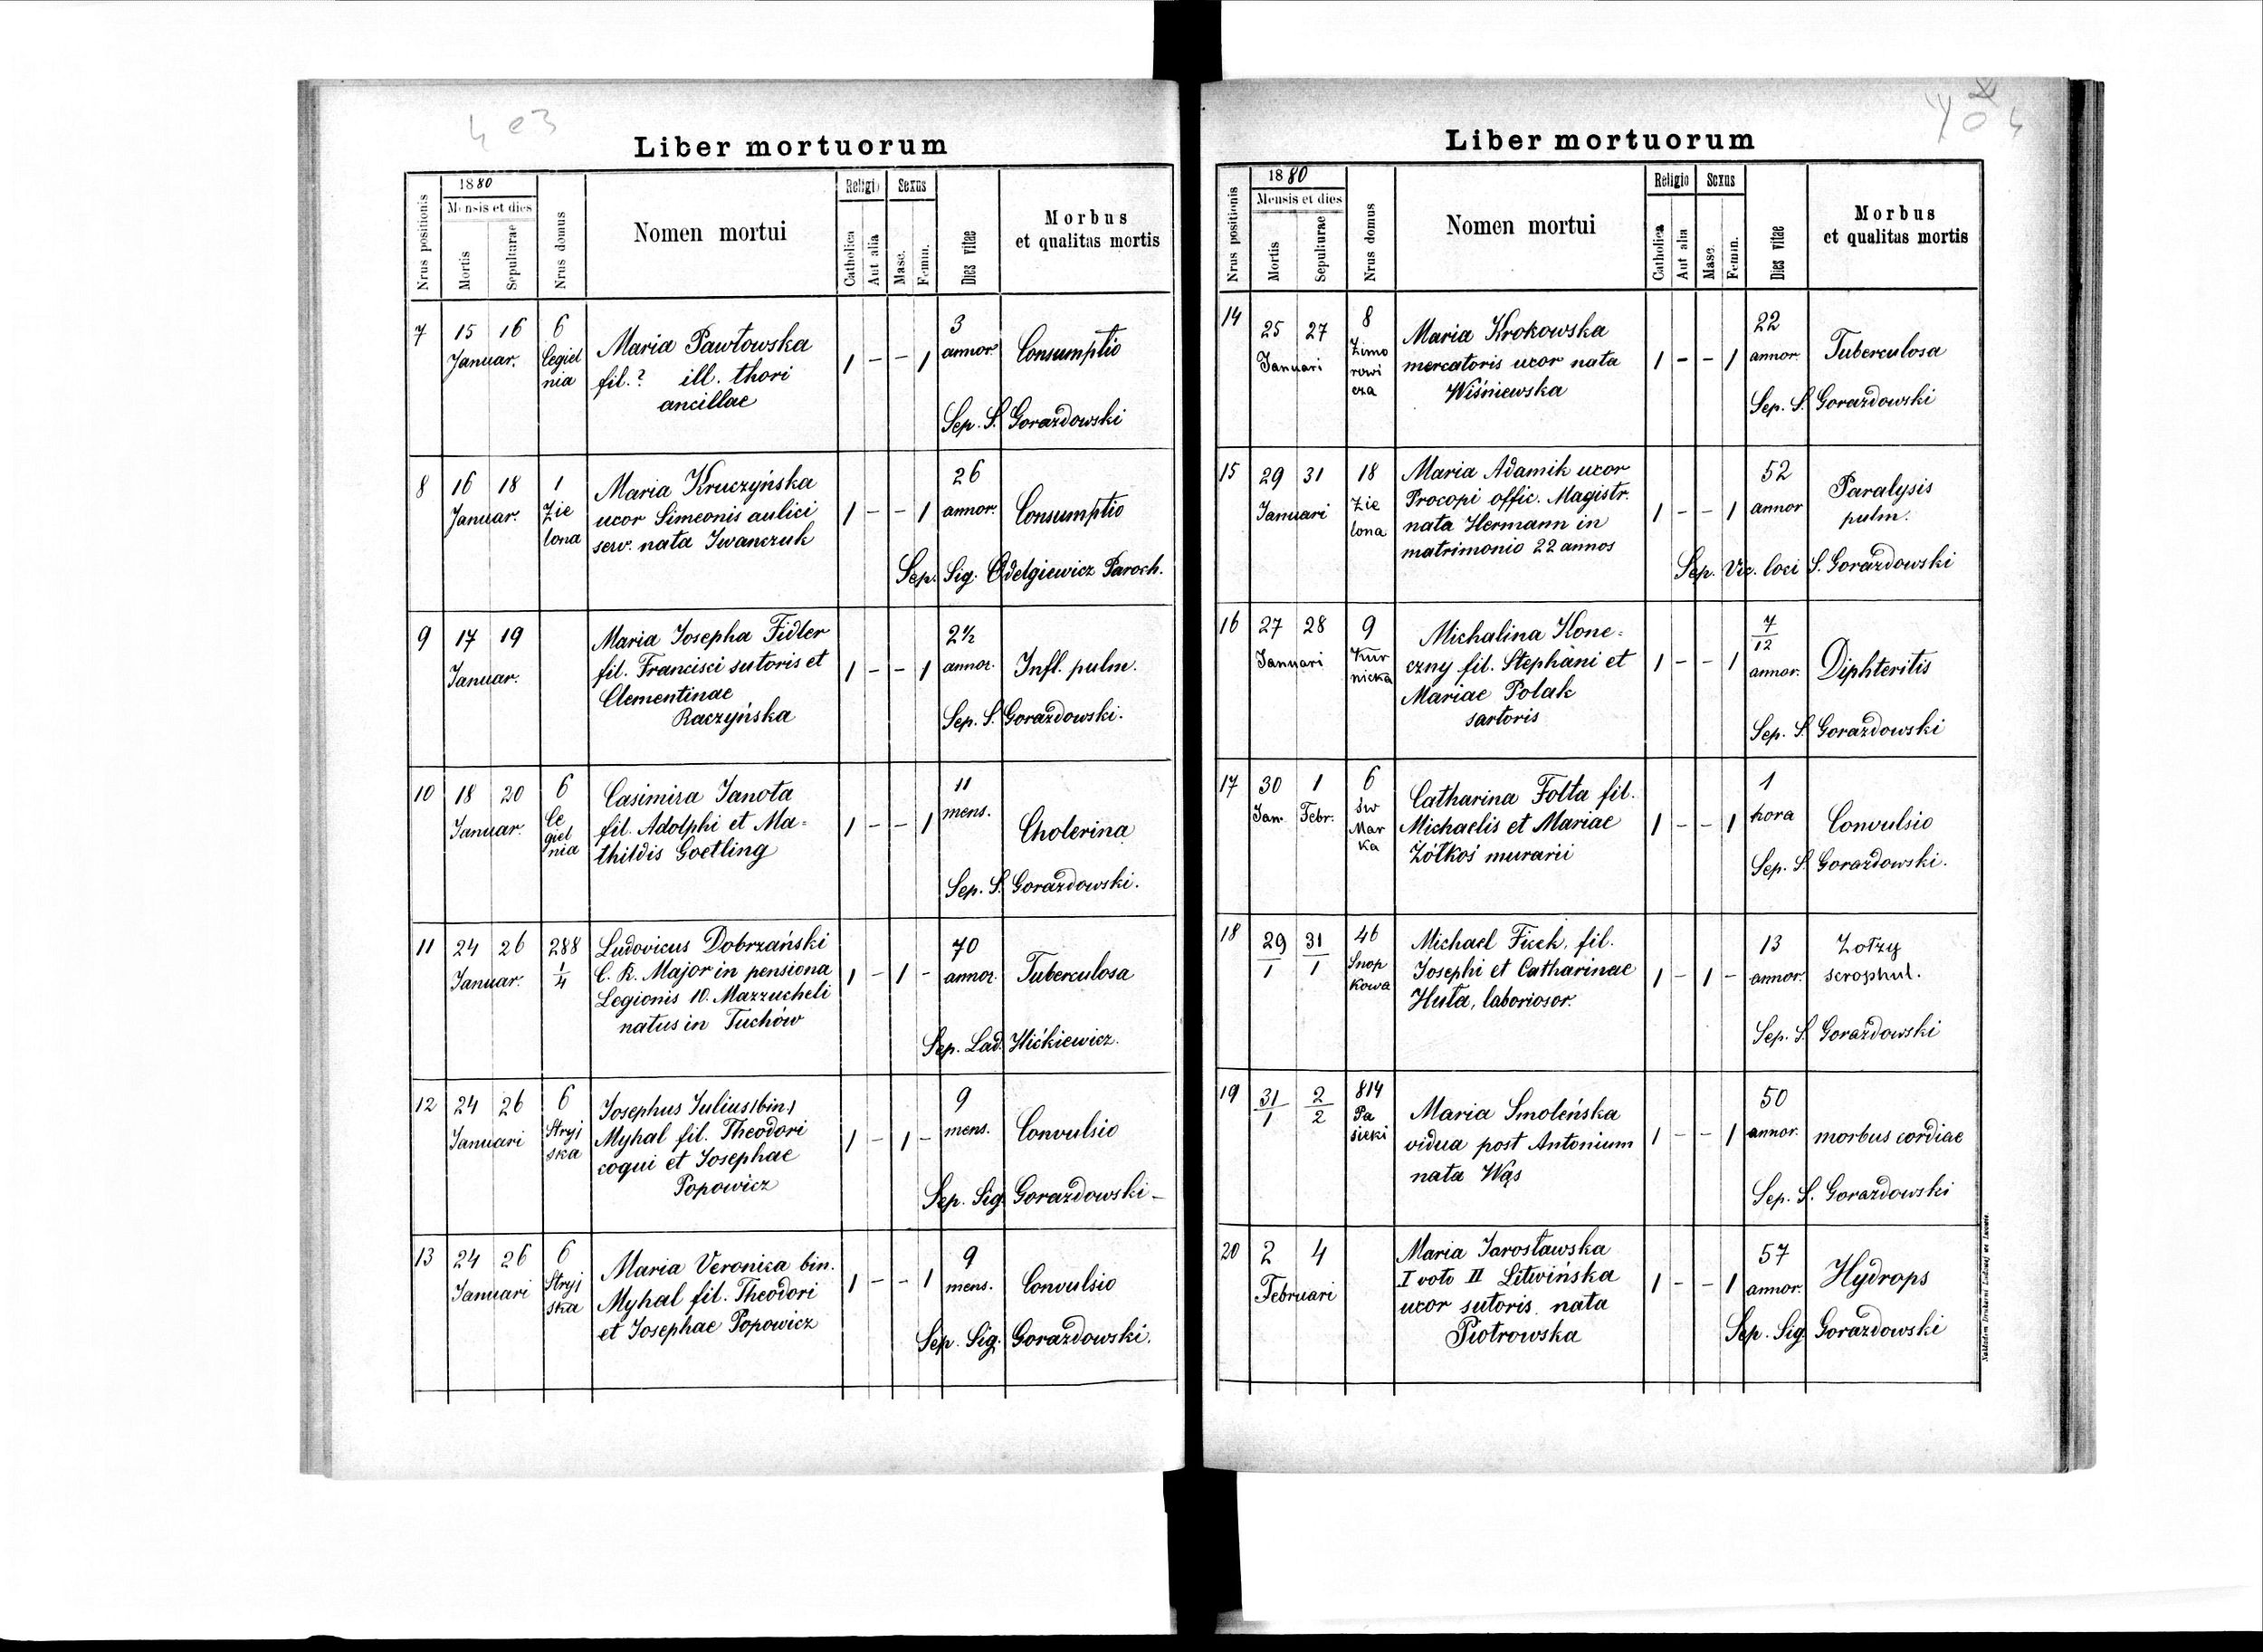 4 e3
Liber mortuorum
Nrus positionis
1880
Mensis et dies
Mortis
Sepulturae
Nrus domus
Nomen mortui
Religio
Catholica
Aut alia
Sexus
Masc.
Femin.
Dies vitae
Morbus
et qualitas mortis
7 15 16 Januar. 6 Cegiel
nia
Maria Pawłowska
fil.? ill. thori
ancillae
1 - - 1
3
annor.
Consumptio
Sep. S. Gorazdowski
8 16 18 Januar. 1 Zie
lona
Maria Kruczyńska
uxor Simeonis aulici
serv. nata Iwanczuk
1 - - 1
26
annor.
Consumptio
Sep. Sig. Odelgiewicz Paroch.
9 17 19 Januar.
Maria Josepha Fidler
fil. Francisci sutoris et
Clementinae
Raczyńska
1 - - 1
2½
annor.
Infl. pulm.
Sep. S. Gorazdowski.
10 18 20 Januar. 6 Ce
giel
nia
Casimira Janota
fil. Adolphi et Ma=
thildis Goetling
1 - - 1
11
mens.
Cholerina
Sep. S. Gorazdowski.
11 24 26 Januar. 288
1/4
Ludovicus Dobrzański
C. R. Major in pensiona
Legionis 10. Mazzucheli
natus in Tuchów
1 - 1 -
70
annor.
Tuberculosa
Sep. Lad. Hićkiewicz.
12 24 26 Januari 6 Stryj
ska
Josephus Julius (bin.)
Myhal fil. Theodori
coqui et Josephae
Popowicz
1 - 1 -
9
mens.
Convulsio
Sep. Sig. Gorazdowski -
13 24 26 Januari 6 Stryj
ska
Maria Veronica bin.
Myhal fil. Theodori
et Josephae Popowicz
1 - - 1
9
mens.
Convulsio
Sep. Sig. Gorazdowski.
Liber mortuorum
Nrus positionis
1880
Mensis et dies
Mortis
Sepulturae
Nrus domus
Nomen mortui
Religio
Catholica
Aut alia
Sexus
Masc.
Femin.
Dies vitae
Morbus
et qualitas mortis
14 25 27 Januari 8 Zimo
rowi
cza
Maria Krokowska
mercatoris uxor nata
Wiśniewska
1 - - 1
22
annor.
Tuberculosa
Sep. S. Gorazdowski
15 29 31 Januari 18 Zie
lona
Maria Adamik uxor
Procopi offic. Magistr.
nata Hermann in
matrimonio 22 annos
1 - - 1
52
annor
Paralysis
pulm.
Sep. Vic. loci S. Gorazdowski
16 27 28 Januari 9 Kur
nicka
Michalina Kone=
czny fil. Stephani et
Mariae Polak
sartoris
1 - - 1
7/12
annor.
Diphteritis
Sep. S. Gorazdowski
17 30 Jan. 1 Febr. 6 św
Mar
ka
Catharina Folta fil.
Michaelis et Mariae
Żółkoś murarii
1 - - 1
1
hora
Convulsio
Sep. S. Gorazdowski.
18 29/1 31/1 46 Snop
kowa
Michael Ficek, fil.
Josephi et Catharinae
Huta, laboriosor.
1 - 1 -
13
annor.
Zołzy
scrophul.
Sep. S. Gorazdowski
19 31/1 2/2 814 Pa
sieki
Maria Smoleńska
vidua post Antonium
nata Wąs
1 - - 1
50
annor.
morbus cordiae
Sep. S. Gorazdowski
20 2 4 Februari
Maria Jarosławska
I voto II Litwińska
uxor sutoris nata
Piotrowska
1 - - 1
57
annor.
Hydrops
Sep. Sig. Gorazdowski
Nakładem Drukarni Ludowej we Lwowie.